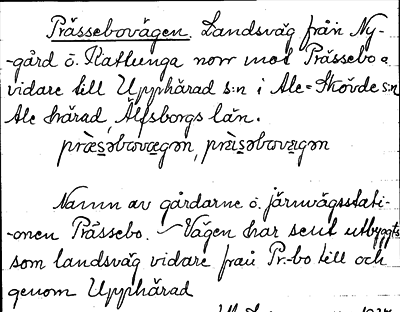 Prässebovägen. Landsväg från Ny-
-gård ö. Katlunga norr mot Prässebo o
vidare till Upphärad s:n i Ale-Skövde s:n
Ale härad, Älfsborgs län.
præ̀s̱əbovægən, præ̀i̱səbovægən
Namn av gårdarne o. järnvägsstati-
-onen Prässebo. – Vägen har sent utbyggts
som landsväg vidare från Pr.-bo till och
genom Upphärad